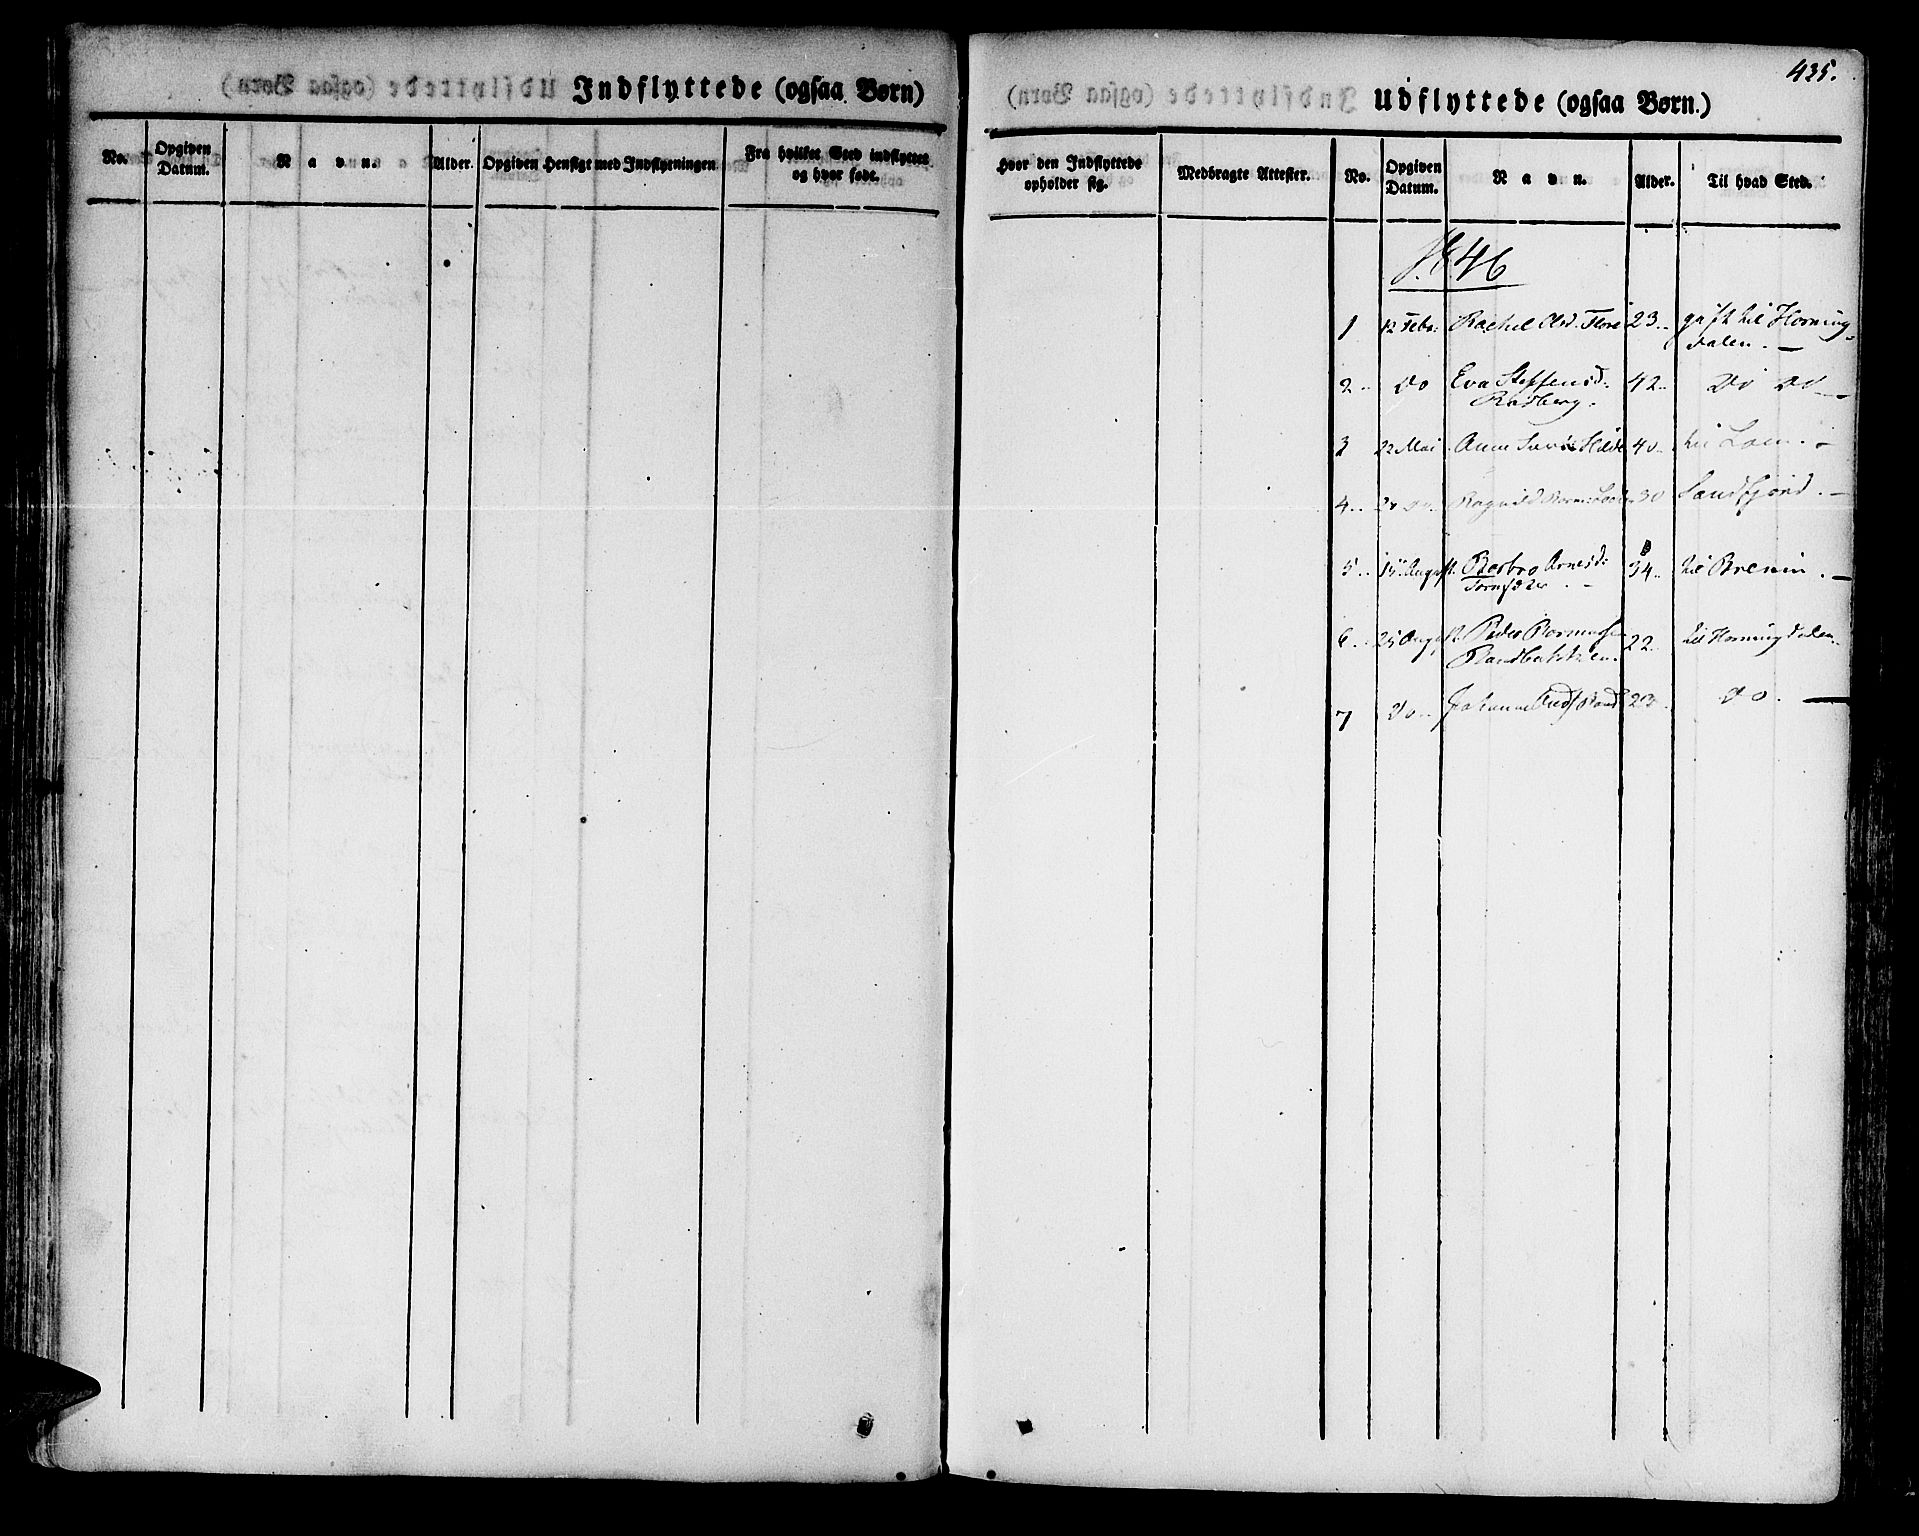 Indflyttede (ogsaa Børn)
No.
Opgiven Datum.
Navn.
Alder.
Opgiven Hensigt med Indflytningen
Fra hvilket Sted indflyttet og hvor føde.
435.
Udflyttede (ogsaa Børn.)
Hvor den Indflyttede opholder sig.
Medbragte Attester.
No.
Opgiven Datum.
Navn.
Alder.
Til hvad Sted.
1846
1 12 Febr: Rachel Olsd. Flore 23.. gift til Horning-
dalen. —
2.. do Eva Steffensd: 42.. do do —
Rødberg.
3 22 Mai Anne Hilde 40.. til Lom. —
4.. do. Ragnild 30 Sandfjord. —
5.. 15 August. Barbro Arnesd: 34.. til Bremn. —
6.. 25 August. Peder Rasmussen 22.. til Horningdalen
7 Do.. Johanne 23 do. —